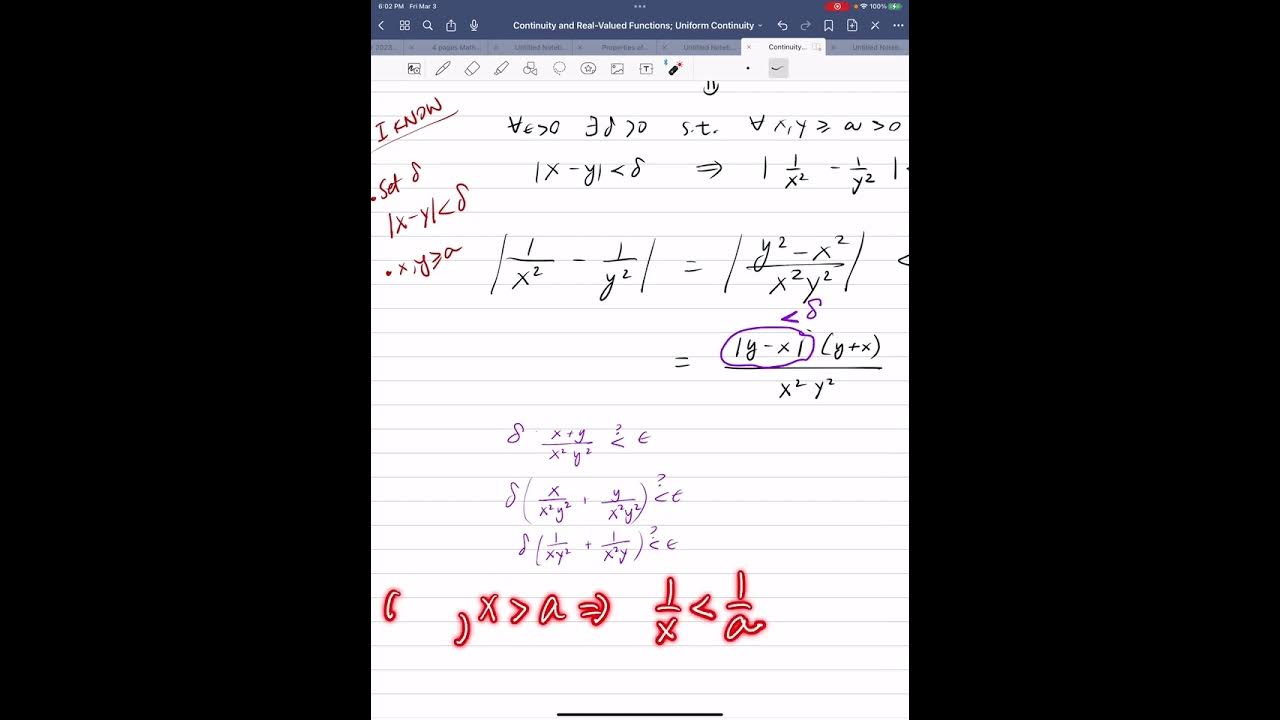 6:02 PM Fri Mar 3
100%
Continuity and Real-Valued Functions; Uniform Continuity
2023... 4 pages Math... Untitled Noteb... Properties of... Untitled Noteb... Continuity... Untitled Noteb
I KNOW
∀ε>0 ∃δ>0 s.t. ∀ x,y ≥ a >0
• Set δ
|x-y|<δ ⇒ | 1/x² - 1/y² | <
|x-y|<δ
• x,y≥a
| 1/x² - 1/y² | = | (y² - x²)/(x²y²) | <
<δ
= |y-x| (y+x) / x² y²
δ · (x+y)/(x² y²) <? ε
δ ( x/(x²y²) + y/(x²y²) ) <? ε
δ ( 1/(xy²) + 1/(x²y) ) <? ε
, x > a ⇒ 1/x < 1/a